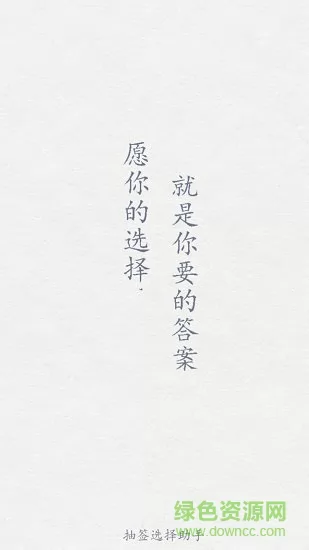 愿你的选择,
就是你要的答案
绿色资源网
抽签选择助手
www.downcc.com